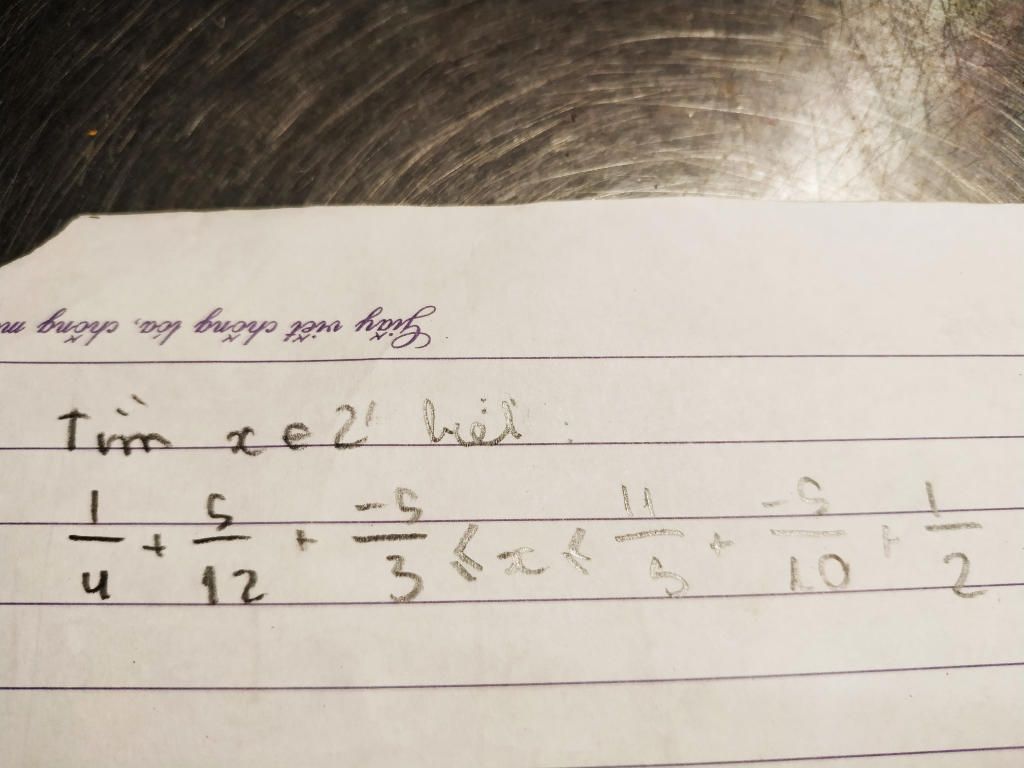 Giấy viết chống lóa, chống m
Tìm x ∈ Z biết :
1/4 + 5/12 + -5/3 ≤ x ≤ 11/5 + -5/10 + 1/2